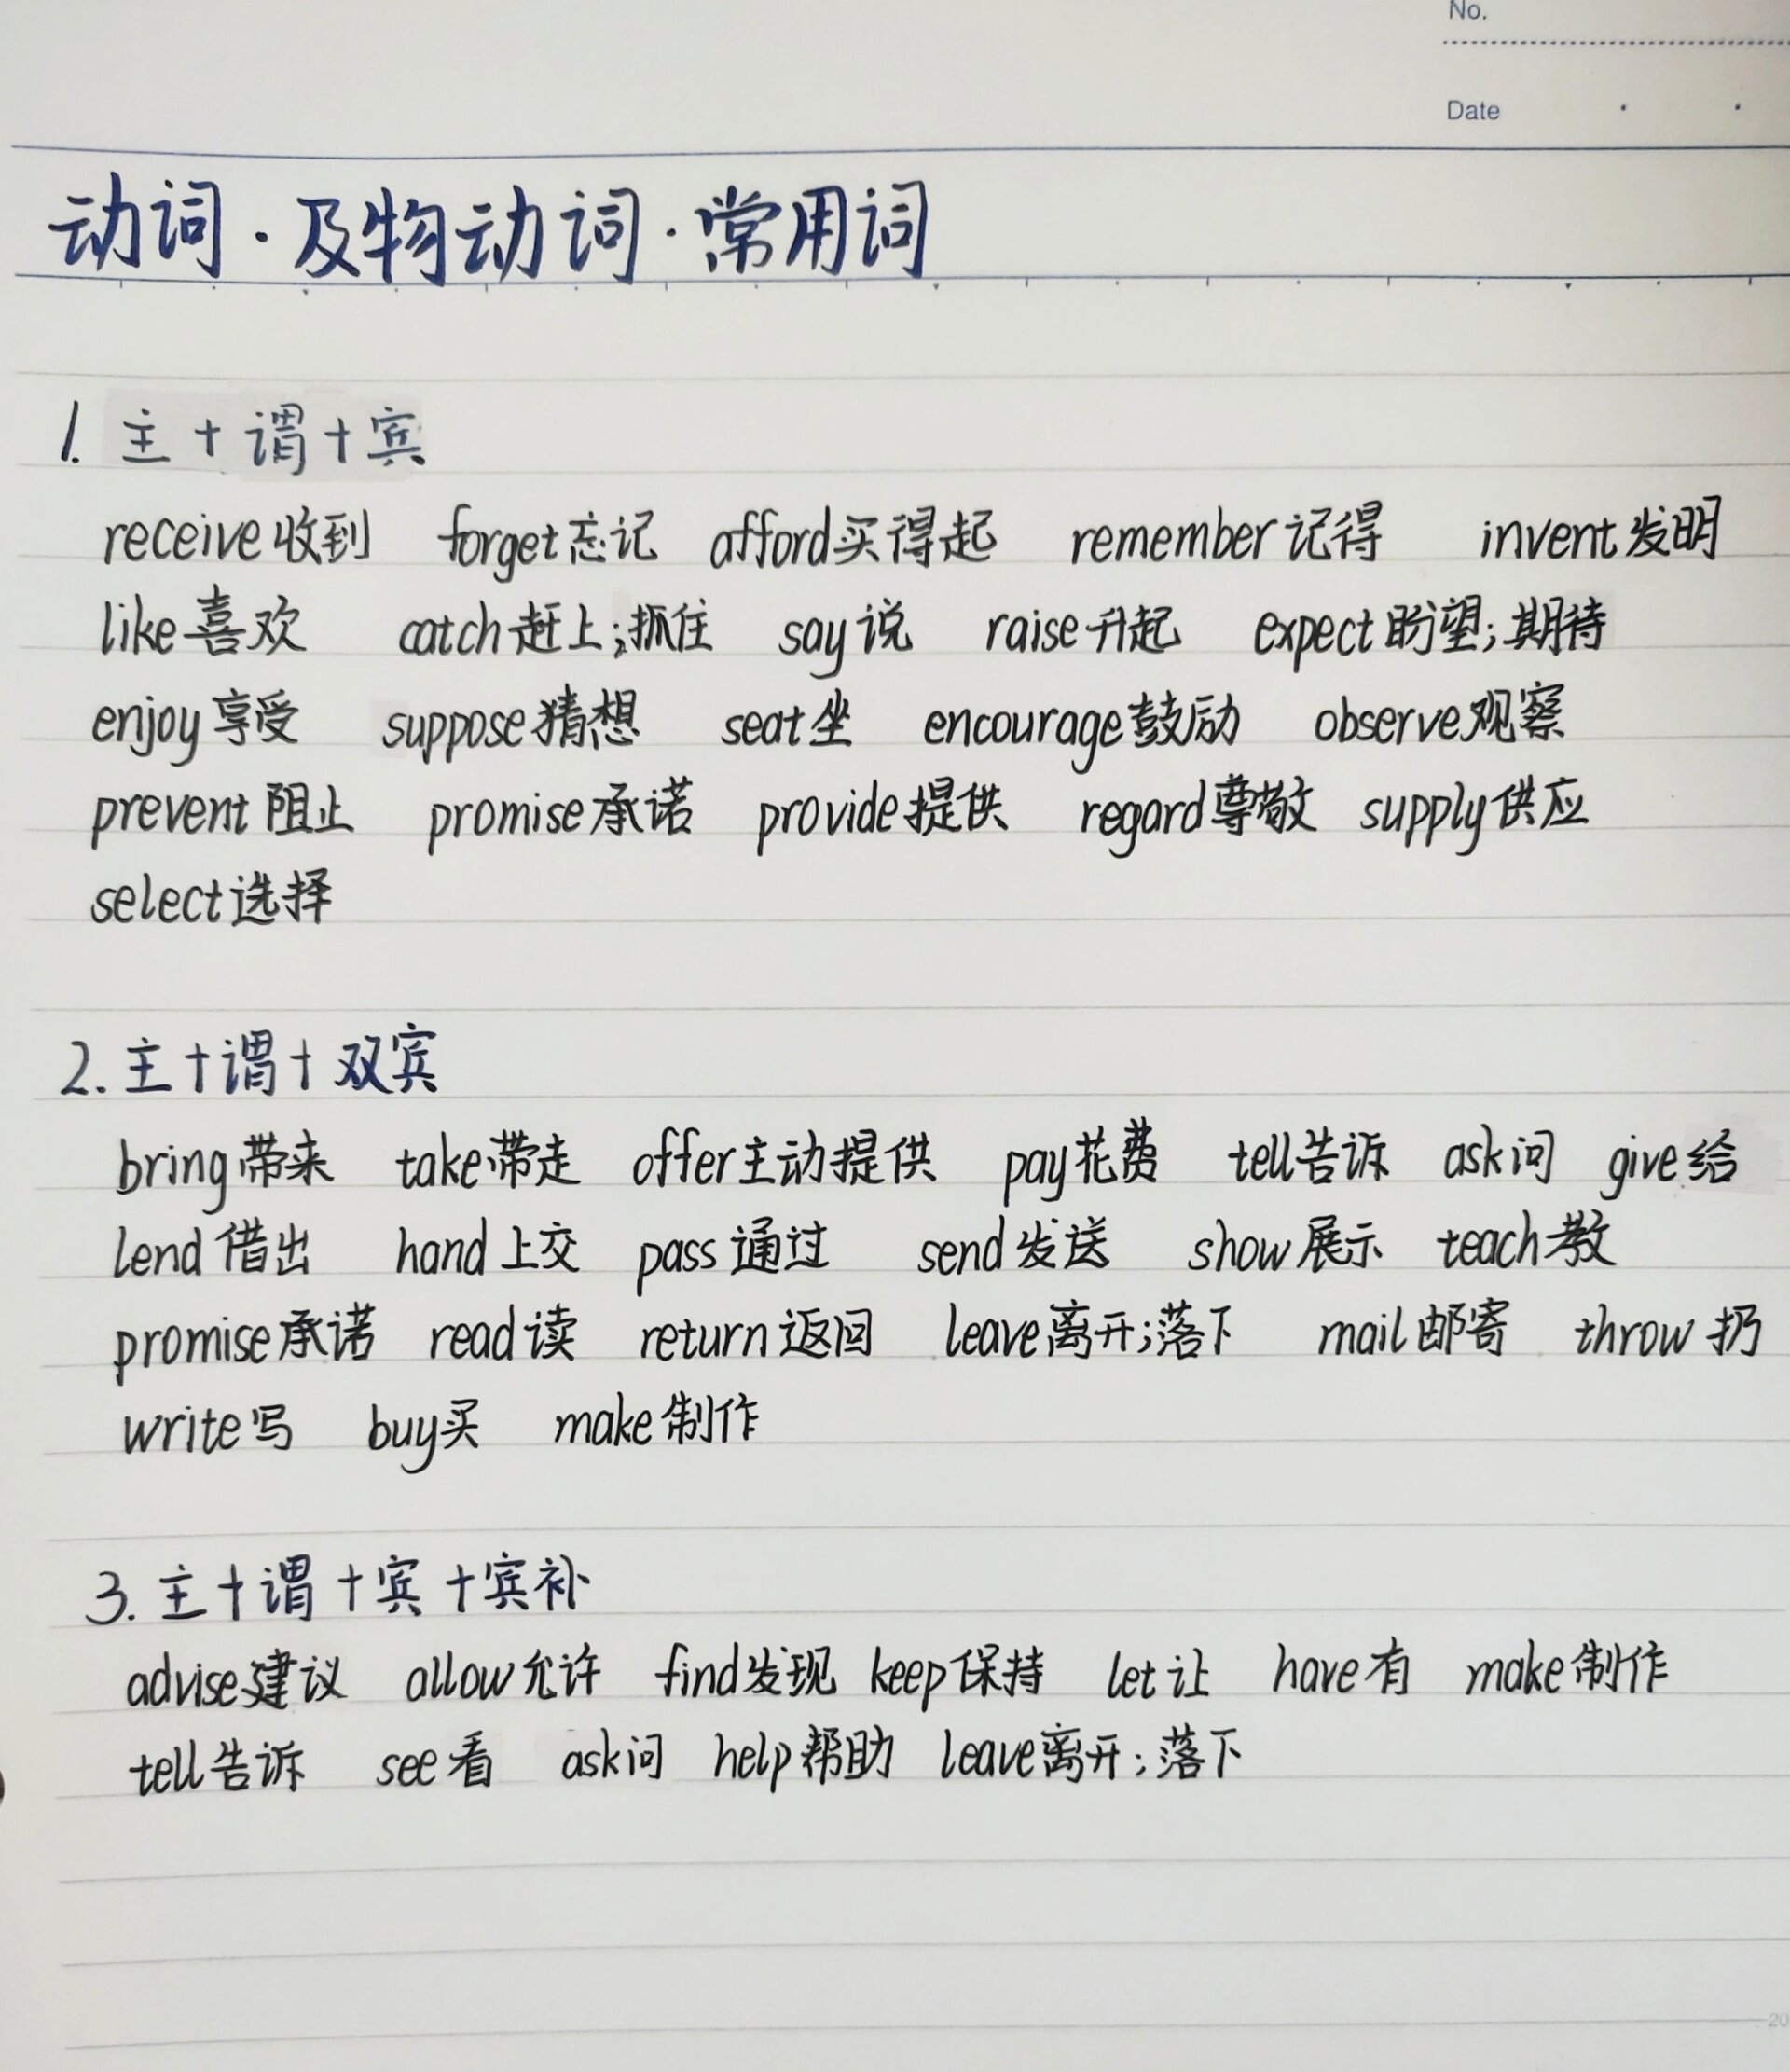 No.
Date
动词·及物动词·常用词
1. 主+谓+宾
receive收到 forget忘记 afford买得起 remember记得 invent发明
like喜欢 catch赶上;抓住 say说 raise升起 expect盼望;期待
enjoy享受 suppose猜想 seat坐 encourage鼓励 observe观察
prevent阻止 promise承诺 provide提供 regard尊敬 supply供应
select选择
2. 主+谓+双宾
bring带来 take带走 offer主动提供 pay花费 tell告诉 ask问 give给
lend借出 hand上交 pass通过 send发送 show展示 teach教
promise承诺 read读 return返回 leave离开;落下 mail邮寄 throw扔
write写 buy买 make制作
3. 主+谓+宾+宾补
advise建议 allow允许 find发现 keep保持 let让 have有 make制作
tell告诉 see看 ask问 help帮助 leave离开;落下